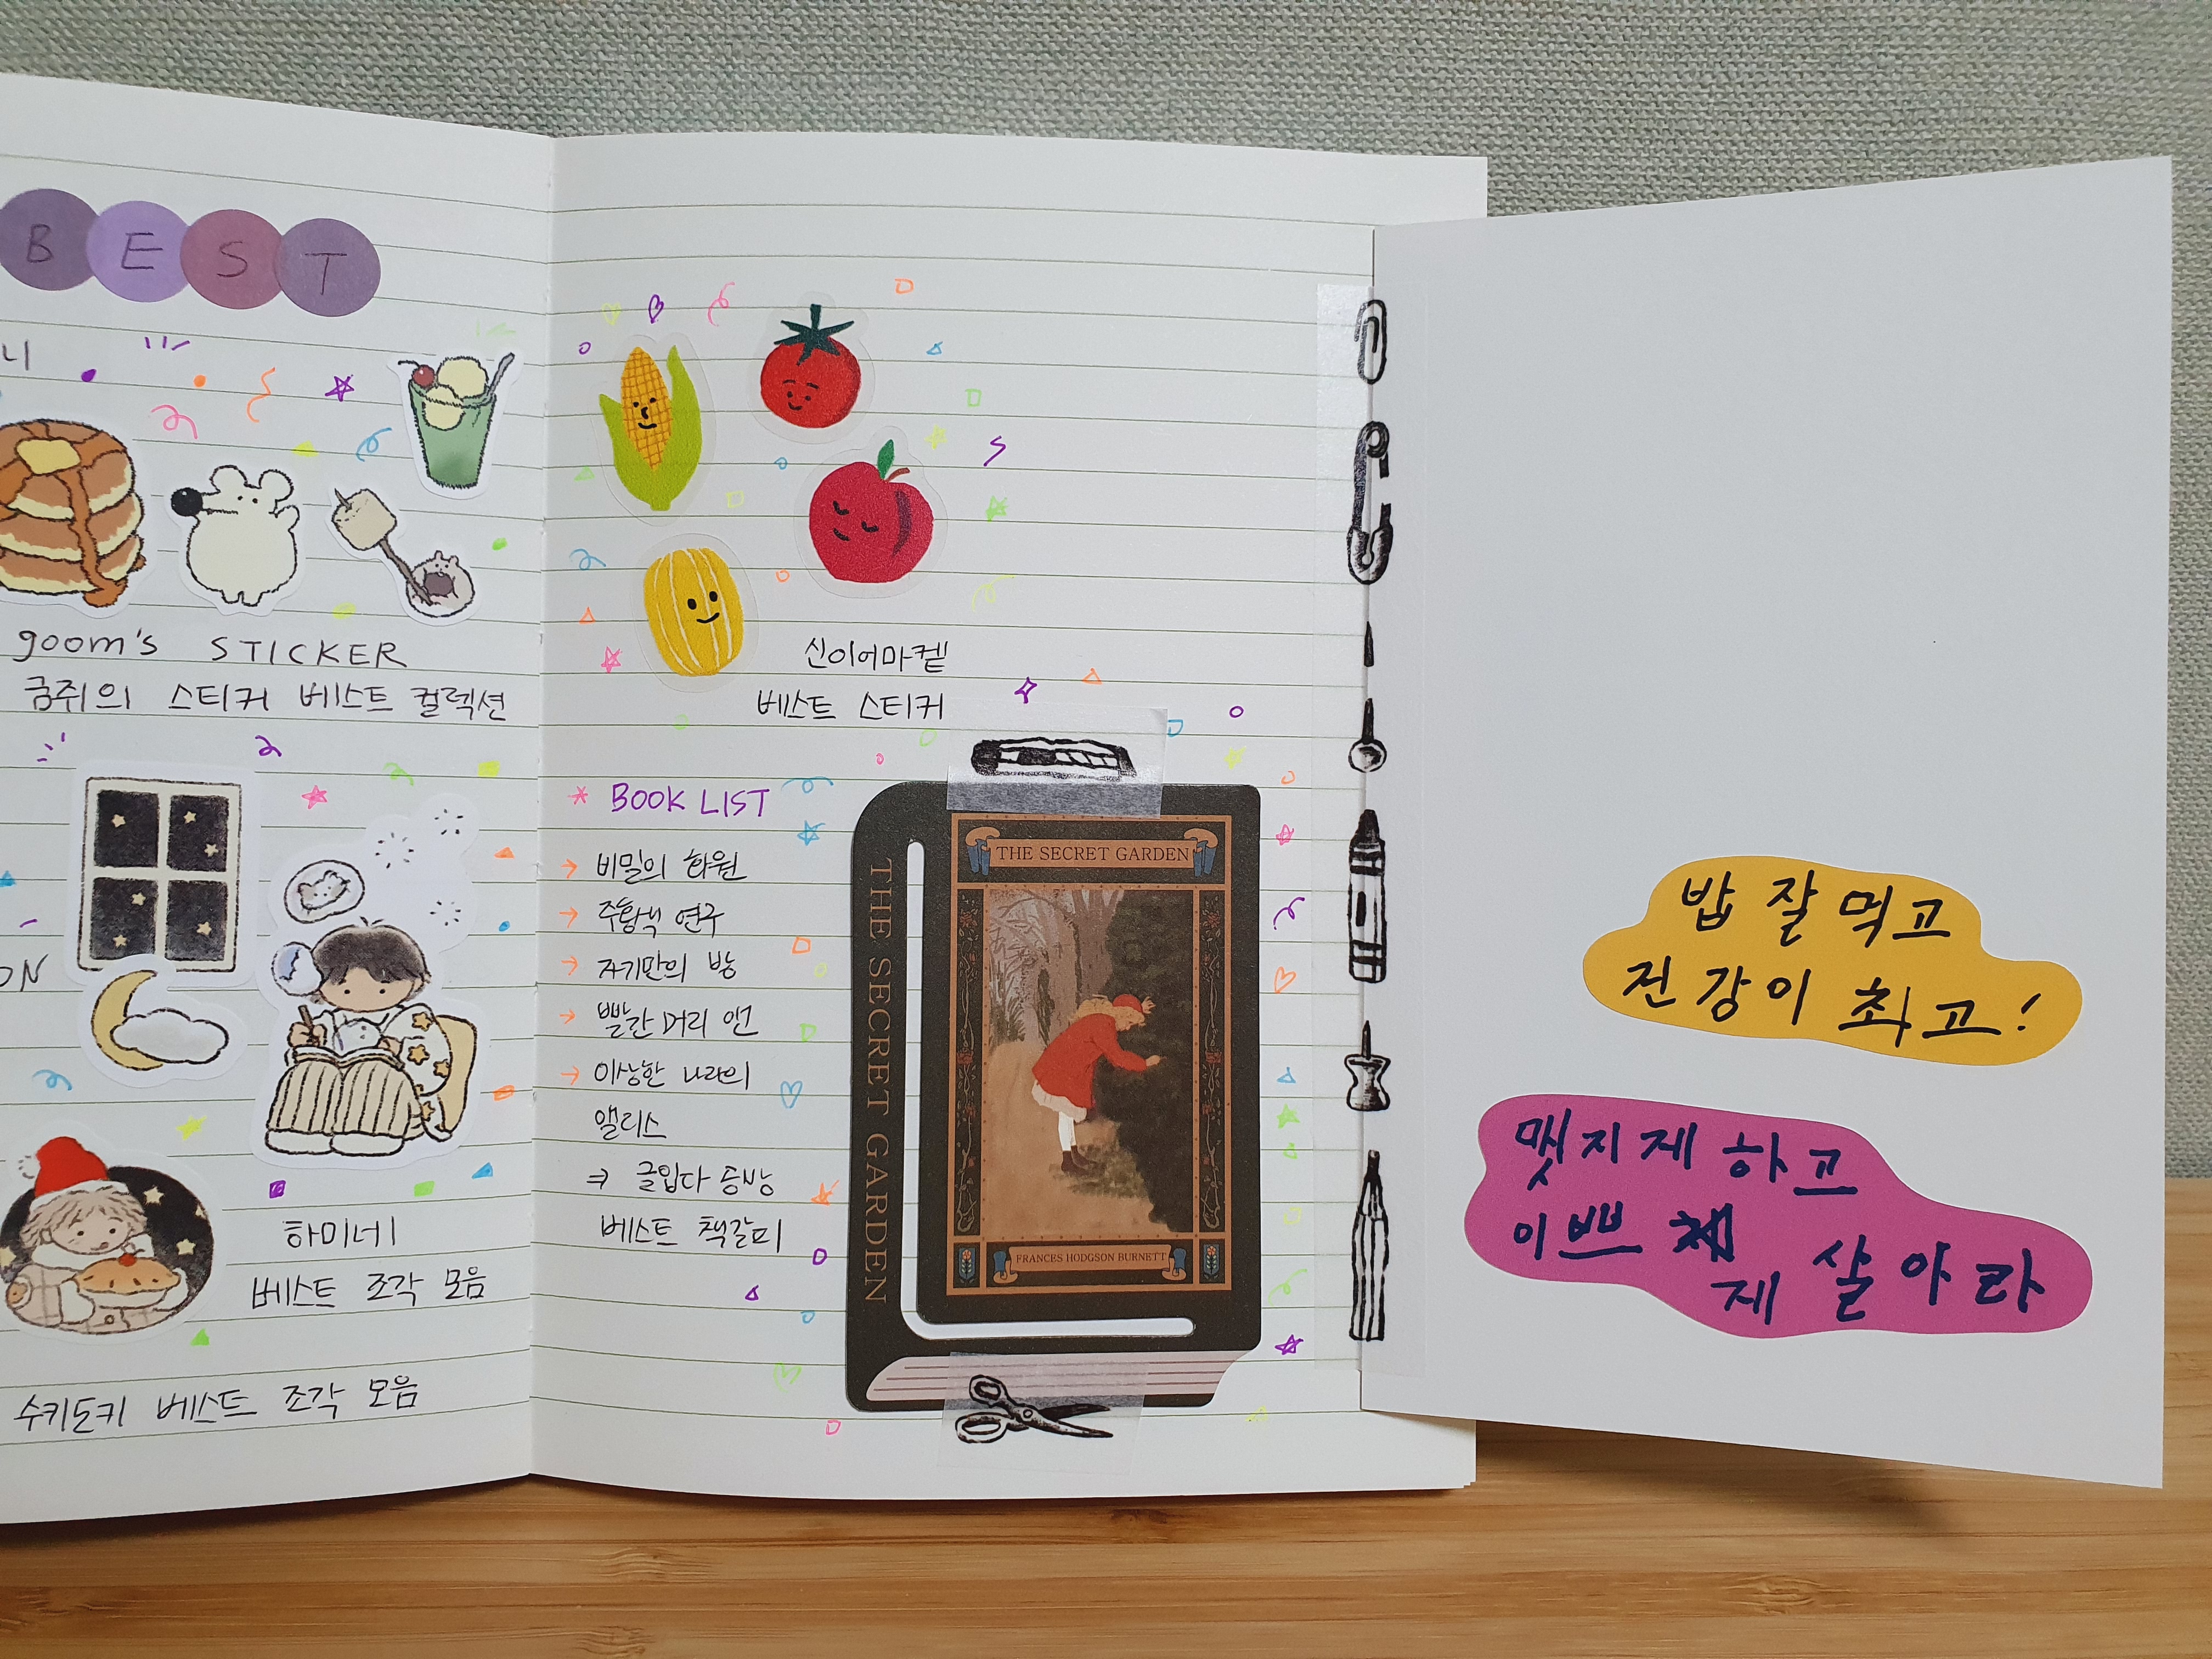 BEST
니
goom's STICKER
굼쥐의 스티커 베스트 컬렉션
ON
하미네
베스트 조각 모음
수키도키 베스트 조각 모음
신이어마켙
베스트 스티커
* BOOK LIST
→ 비밀의 화원
→ 주황색 연구
→ 자기만의 방
→ 빨간머리 앤
→ 이상한 나라의
앨리스
⇒ 글입다 공방
베스트 책갈피
THE SECRET GARDEN
THE SECRET GARDEN
FRANCES HODGSON BURNETT
밥 잘 먹고
건강이 최고!
멋지제 하고
이쁘
제 살아라